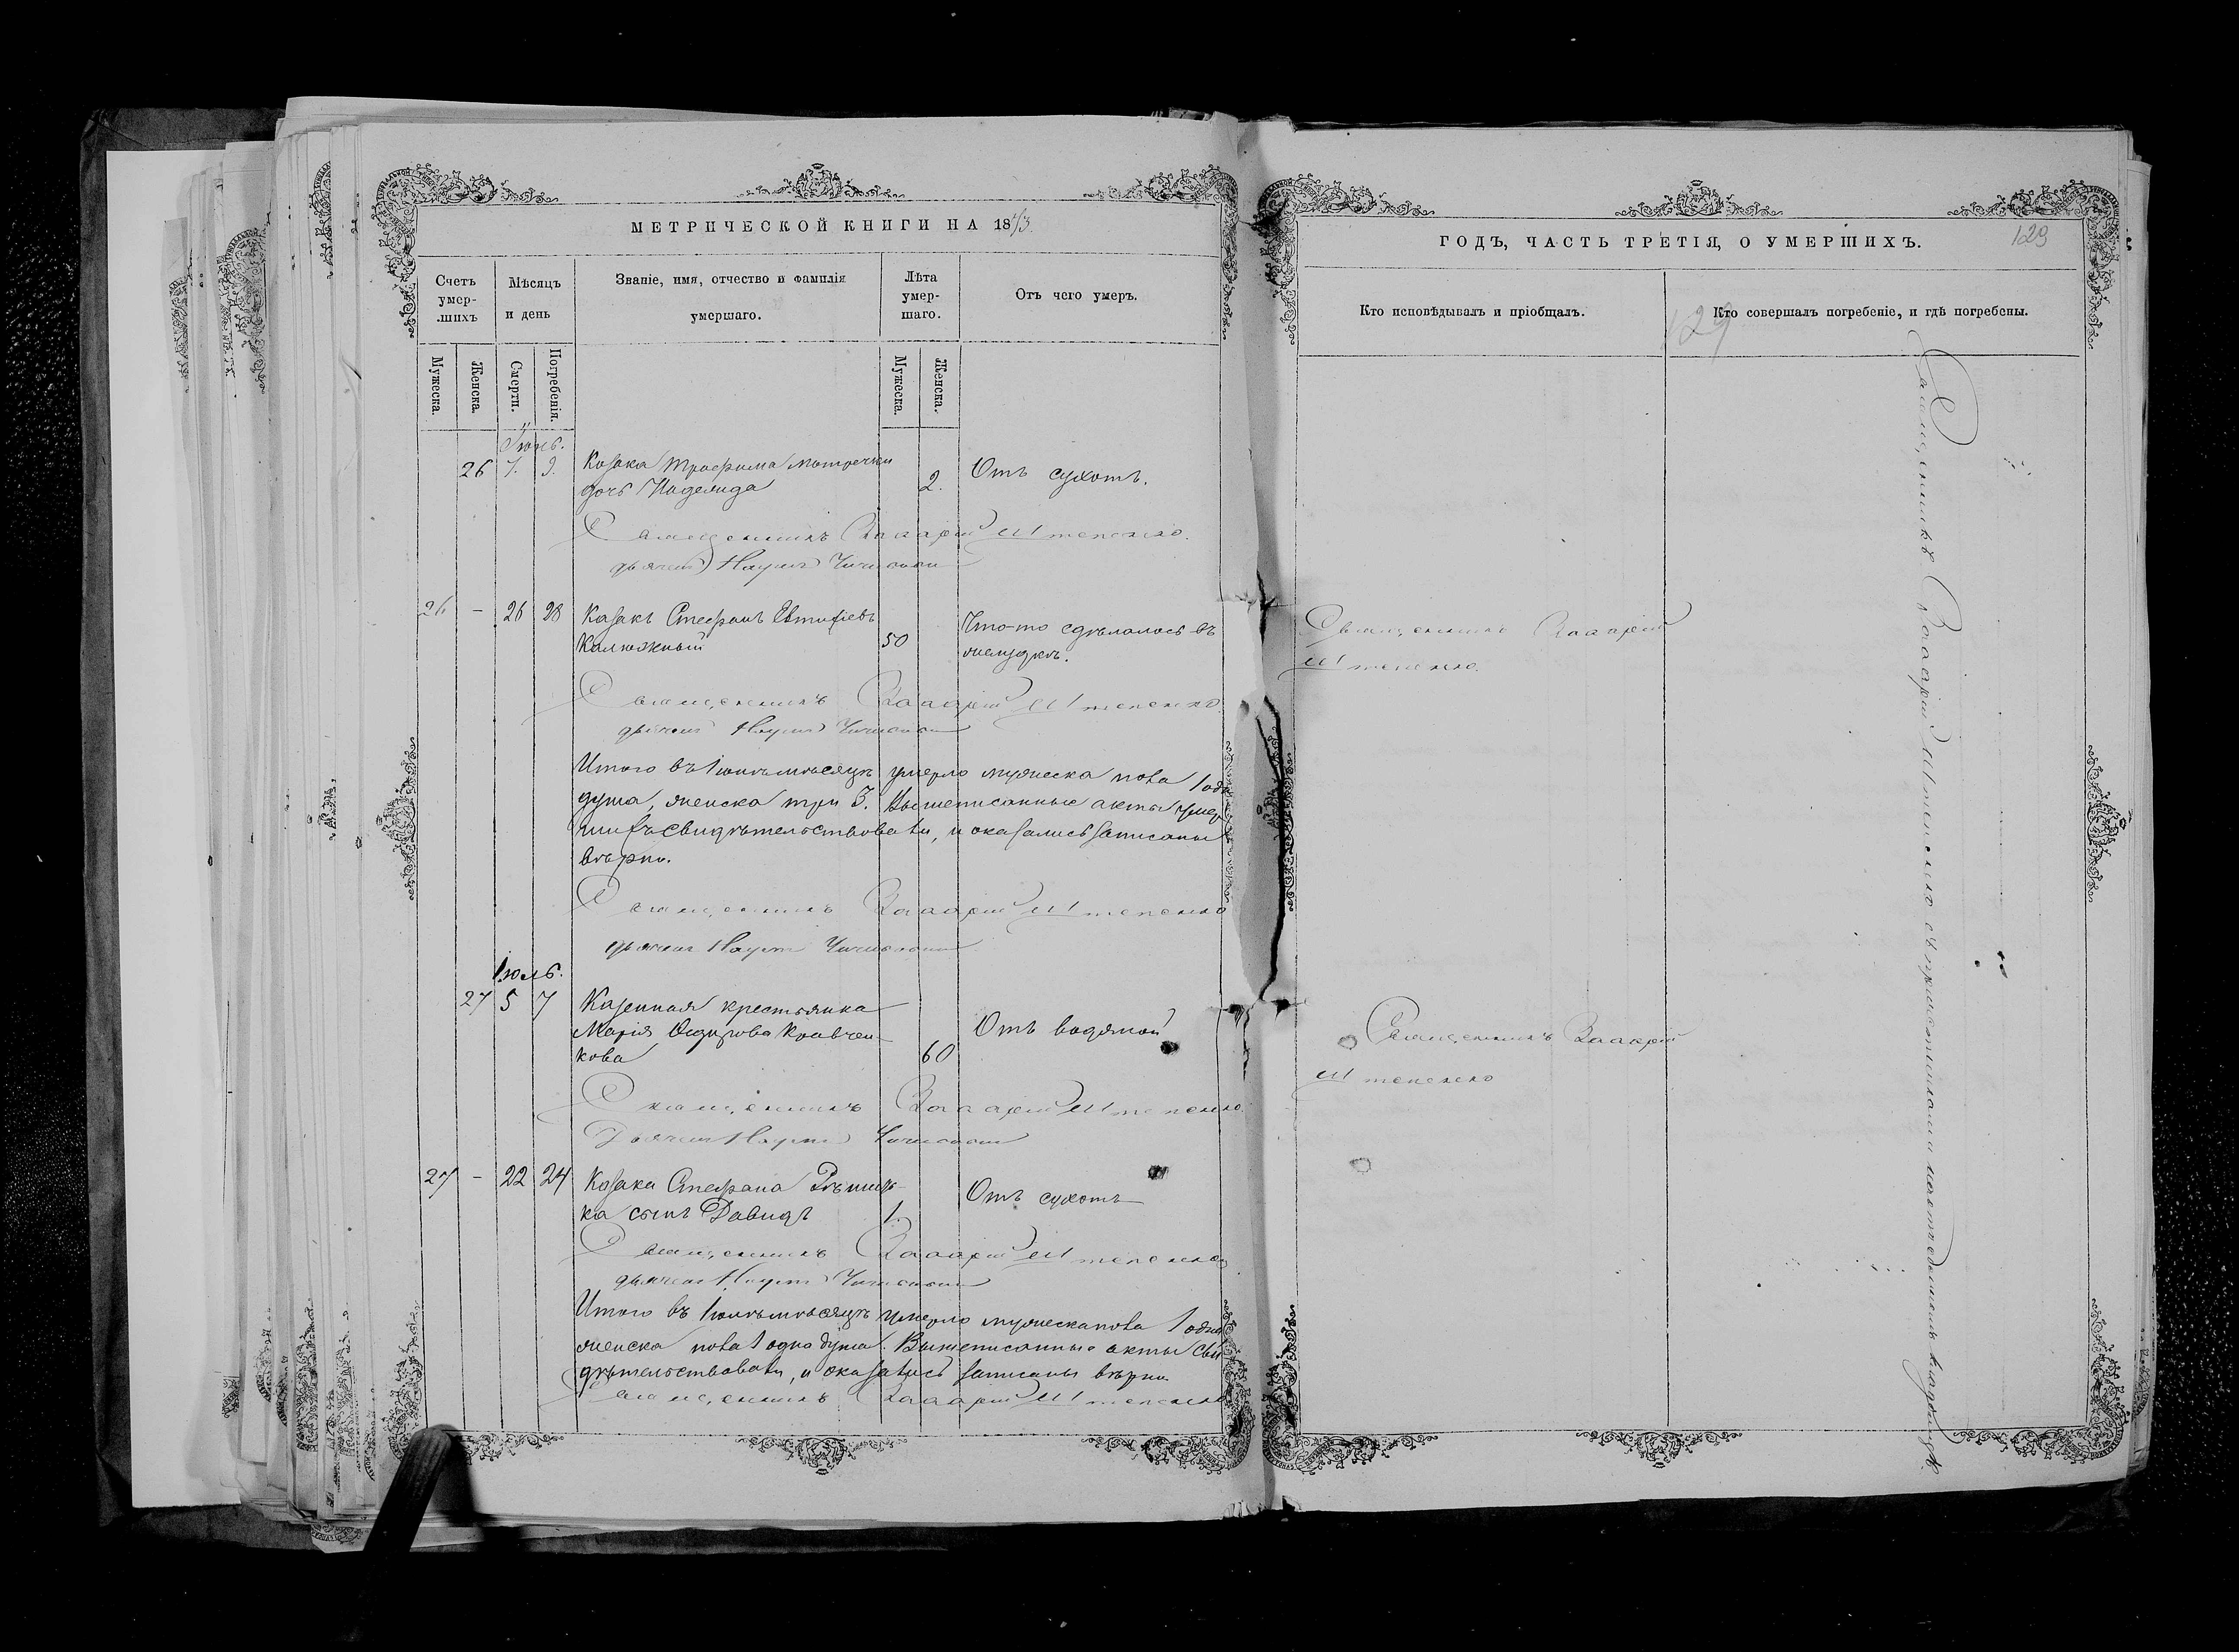 МЕТРИЧЕСКОЙ КНИГИ НА 18
Счетъ умер-шихъ
Мѣсяцъ и день
Званіе, имя, отчество и фамилія умершаго.
Лѣта умер-шаго.
Отъ чего умеръ.
Мужеска.
Женска.
Смерти.
Погребенія.
Мужеска.
Женска.
Іюнь.
26 7. 9. Козака Трофима
дочь Надежда 2. Отъ сухотъ.
Священникъ Захарій Штепенко.
дьячекъ Наумъ
26 - 26 28 Казакъ Стефанъ Евтихіевъ
Калюжный 50 Что-то сдѣлалось въ
желудкѣ.
Священникъ Захарій Штепенко.
дьячекъ Наумъ
Итого въ Іюнѣ мѣсяцѣ умерло мужеска пола 1 одна
душа, женска три 3. Вышеписанные акты умер
шихъ свидѣтельствовали, и оказались записаны
вѣрно.
Священникъ Захарій Штепенко
дьячекъ Наумъ
Іюль.
27 5 7 Казенная крестьянка
Марія Кравчен-
кова 60 Отъ водяной
Священникъ Захарій Штепенко.
Дьячекъ Наумъ
27 - 22 24 Козака Стефана
ка сынъ Давидъ 1. Отъ сухотъ
Священникъ Захарій Штепенко
дьячекъ Наумъ
Итого въ Іюлѣ мѣсяцѣ умерло мужеска пола 1 одна
женска пола 1 одна душа. Вышеписанные акты сви
дѣтельствовали, и оказались записаны вѣрно
Священникъ Захарій Штепенко
ГОДЪ, ЧАСТЬ ТРЕТІЯ, О УМЕРШИХЪ.
129
Кто исповѣдывалъ и пріобщалъ.
129
Кто совершалъ погребеніе, и гдѣ погребены.
Священникъ Захарій
Штепенко.
Священникъ Захарій
Штепенко
Священникъ Захарій Штепенко съ причтомъ на кладбищѣ.